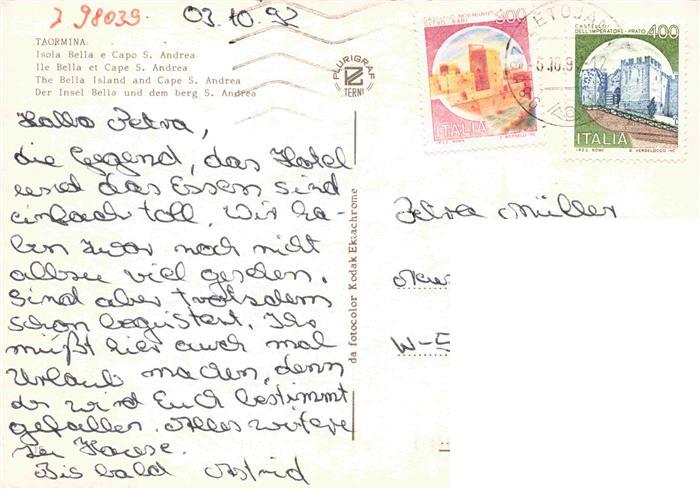 7 98039
03.10.92
TAORMINA
Isola Bella e Capo S. Andrea
Ile Bella et Capo S. Andrea
The Bella Island and Cape S. Andrea
Der Insel Bella und dem berg S. Andrea
PLURIGRAF
TERNI
900
ITALIA
CASTELLO
DELL'IMPERATORE - PRATO 400
ITALIA
Hallo Petra,
die Gegend, das Hotel
und das Essen sind
einfach toll. Wir ha-
ben zwar noch nicht
allzu viel gesehen.
Sind aber trotzdem
schon begeistert. Ihr
müßt hier auch mal
Urlaub machen, denn
es wird Euch bestimmt
gefallen. Alles weitere
zu Hause.
Bis bald Astrid
da fotocolor Kodak Ektachrome
Petra Müller
W-5